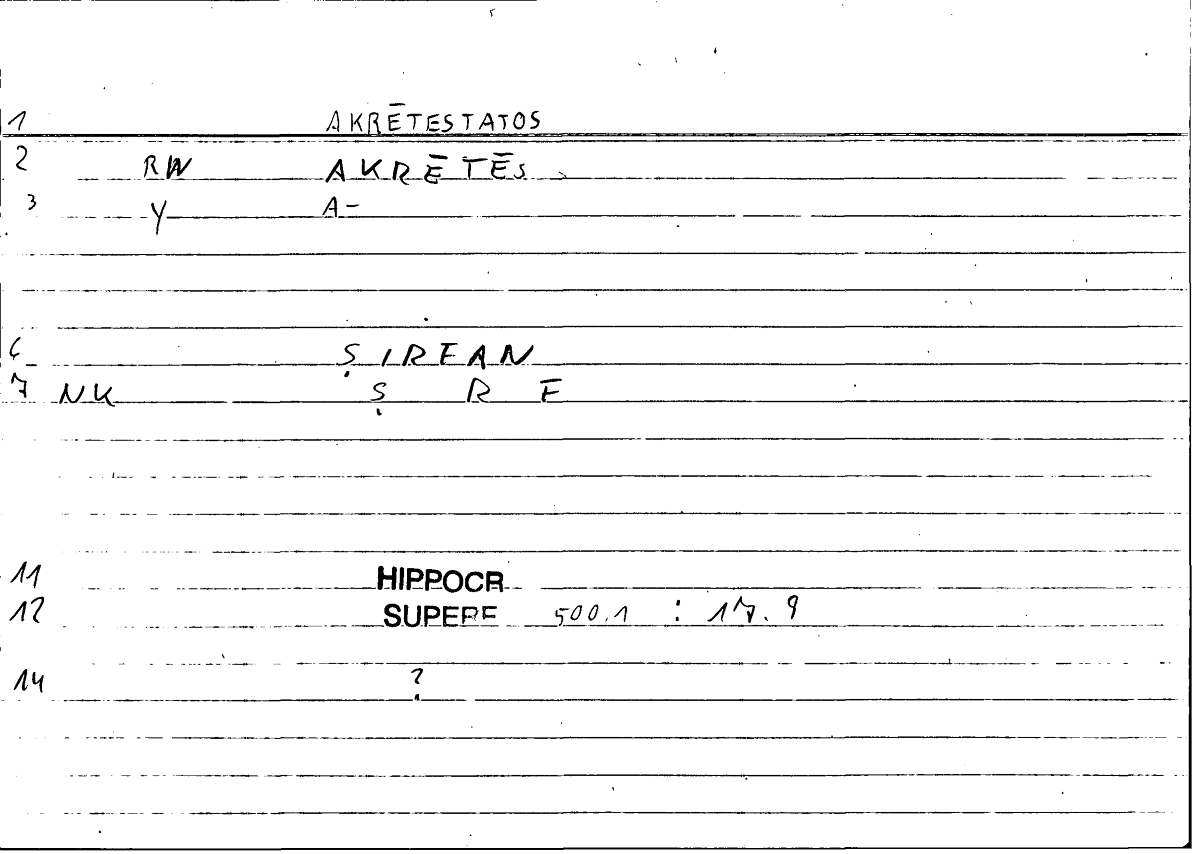 1 AKRĒTESTATOS
2 RW AKRĒTĒS
3 Y A-
6 ṢIREAN
7 NK Ṣ R E
11 HIPPOCR
12 SUPERF 500.1 : 17.9
14 ?